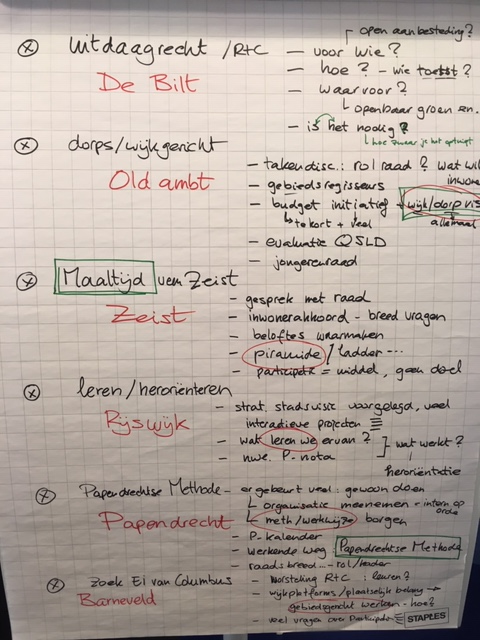 open aanbesteding?
uitdaagrecht / R+C
De Bilt
- voor wie?
- hoe? - wie toetst?
- waarvoor?
openbaar groen en.
- is het nodig?
hoe zwaar je het optuigt
dorps/wijkgericht
Oldambt
- takendisc.: rol raad? wat wil
inwone
- gebiedsregisseurs
- budget initiatief wijk/dorp vis
tekort + veel
allemaal
- evaluatie QSLD
- jongerenraad
Maaltijd van Zeist
Zeist
- gesprek met raad
- inwonerakkoord - breed vragen
- beloftes waarmaken
- piramide / ladder ...
- participatie = middel, geen doel
leren/heroriënteren
Rijswijk
- strat. stadsvisie voorgelegd, veel
interactieve projecten
- wat leren we ervan?
- nwe. P-nota
wat werkt?
heroriëntatie
Papendrechtse Methode
Papendrecht
- er gebeurt veel: gewoon doen
organisatie meenemen = intern op
orde
meth/werkwijze borgen
- P-kalender
- werkende weg: Papendrechtse Methode
- raadsbreed... - rol/kader
zoek Ei van Columbus
Barneveld
- Worsteling R+C: leuren?
- wijkplatforms/plaatselijk belang →
gebiedsgericht werken - hoe?
- veel vragen over Participatie
STAPLES